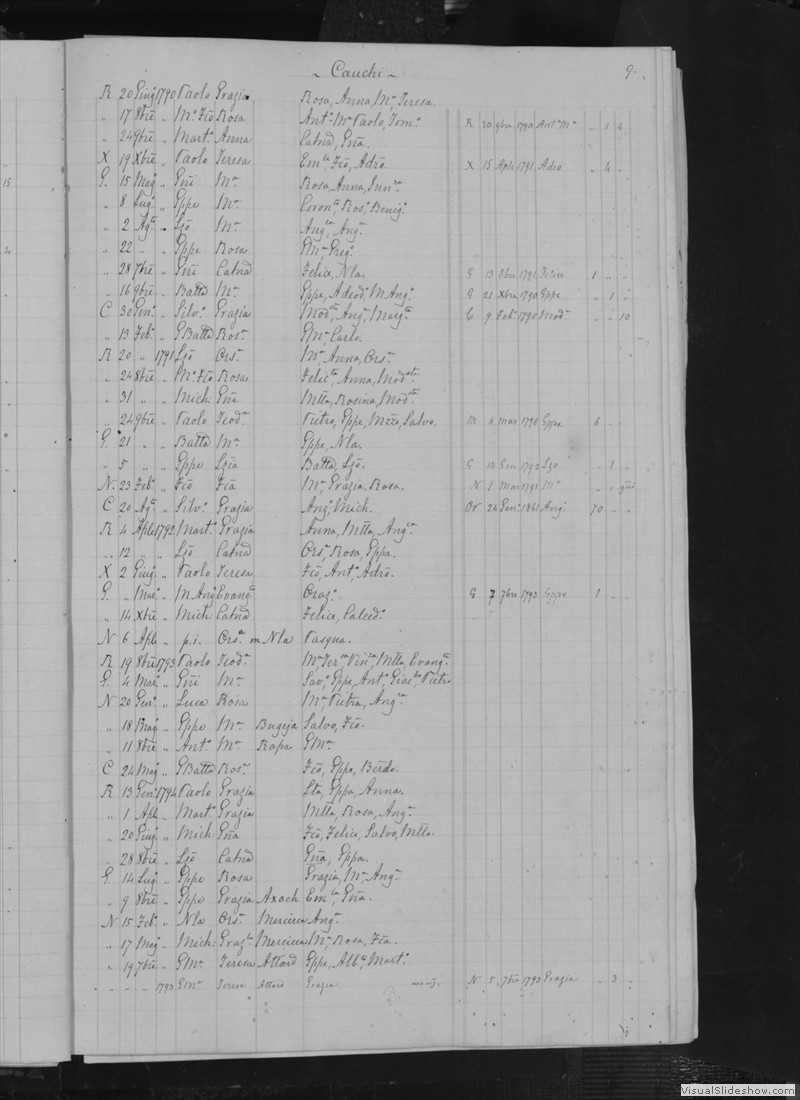 ~ Cauchi ~ 9.
R 20 Giug 1790 Paolo Grazia Rosa, Anna, Ma Teresa.
„ 17 8bre „ Mo Fco Rosa Anto Ma Paolo, Tomo R 20 9bre 1790 Anto Ma „ 1 4
„ 24 9bre „ Marto Anna Catnd, Gña.
X 19 Xbre „ Paolo Teresa Emla Fco, Adreo. X 15 Aple 1791 Adeo „ 4 „
G. 15 Mag „ Gni Ma Rosa, Anna, Innza
„ 8 Lug „ Gppe Ma Corona, Roso, Benigo
„ 2 Aga „ Lzo Ma Angca, Anga
„ 22 „ „ Gppe Rosa GMa Grego
„ 28 7bre „ Gni Catnd Felice, Nla. G 13 8bre 1791 Felice 1 „ „
„ 16 9bre „ Batta Ma Gppe, Adeodo M Ango G 21 Xbre 1790 Gppe „ 1 „
C 30 Geno „ Silvo Grazia Modta, Anga Marga C 9 Febo 1790 Modo „ „ 10
„ 13 Febo „ GBatta Rosa GMa Carlo.
R 20 „ 1791 Lzo Orsa Ma Anna, Orsa
„ 24 8bre „ Mo Fco Rosa Felicta, Anna, Modta
„ 31 „ „ Mich. Gña Mtta, Rosina, Modta
„ 24 9bre „ Paolo Teoda Pietro, Gppe, Mzzo, Salvo. M 4 Mar 1798 Gppe 6 „ „
G. 21 „ „ Batta Ma Gppe, Nla.
„ 5 „ „ Gppe Lzia Batta, Lzo. G 14 Gen 1792 Lzo „ 1 „
N. 23 Febo „ Fco Fca Ma Grazia, Rosa. N 1 Mar 1791 Ma „ „
C 20 Aga „ Silvo Grazia Ango Mich. Or 24 Geno 1861 Ango 70 „ „
R 4 Aple 1792 Marto Grazia Anna, Mtta, Angca
„ 12 „ „ Lzo Catnd Orsa, Rosa, Gppa.
X 2 Giug „ Paolo Teresa Fco, Anto, Adreo.
G. „ Mago „ M Ang Evanga Orazo G 7 7bre 1793 Gppe 1 „ „
„ 14 Xbre „ Mich Catnd Felice, Calcedo
N 6 Aple „ p.i. Orsa m Nla Pasqua.
R 19 8bre 1793 Paolo Teoda Ma Tersa Vinza, Mtta, Evanga
G. 4 Mar „ Gni Ma Savo, Gppe, Anto Giacmo, Pietro
N 20 Geno „ Luca Rosa Ma Pietra, Angca
„ 18 Mag „ Gppe Ma Bugeja Salvo, Fco.
„ 11 8bre „ Anto Ma Rapa GMa
C 24 Mag „ GBatta Rosa Fco, Gppe, Birdo.
R 13 Geno 1794 Paolo Grazia Lta, Gppa, Anna.
„ 1 Aple „ Marto Grazia Mtta, Rosa, Anga
„ 20 Giug „ Mich Gña Fco, Felice, Salvo, Mtta.
„ 28 8bre „ Lzo Catnd Gña, Gppa.
G. 14 Lug „ Gppe Rosa Grazia, Ma Anga
„ 9 8bre „ Gppe Grazia Axach Emla, Gña.
N 15 Febo „ Nla Orsa Mercieca Anga
„ 17 Mag „ Mich Grazla Mercieca Ma, Rosa, Fca.
„ 19 7bre „ GMa Teresa Attard Gppe, Alba, Marto
1793 GMa Teresa Attard Grazia N 5 7bre 1793 Grazia „ 3 „
15
4
VisualSlideshow.com